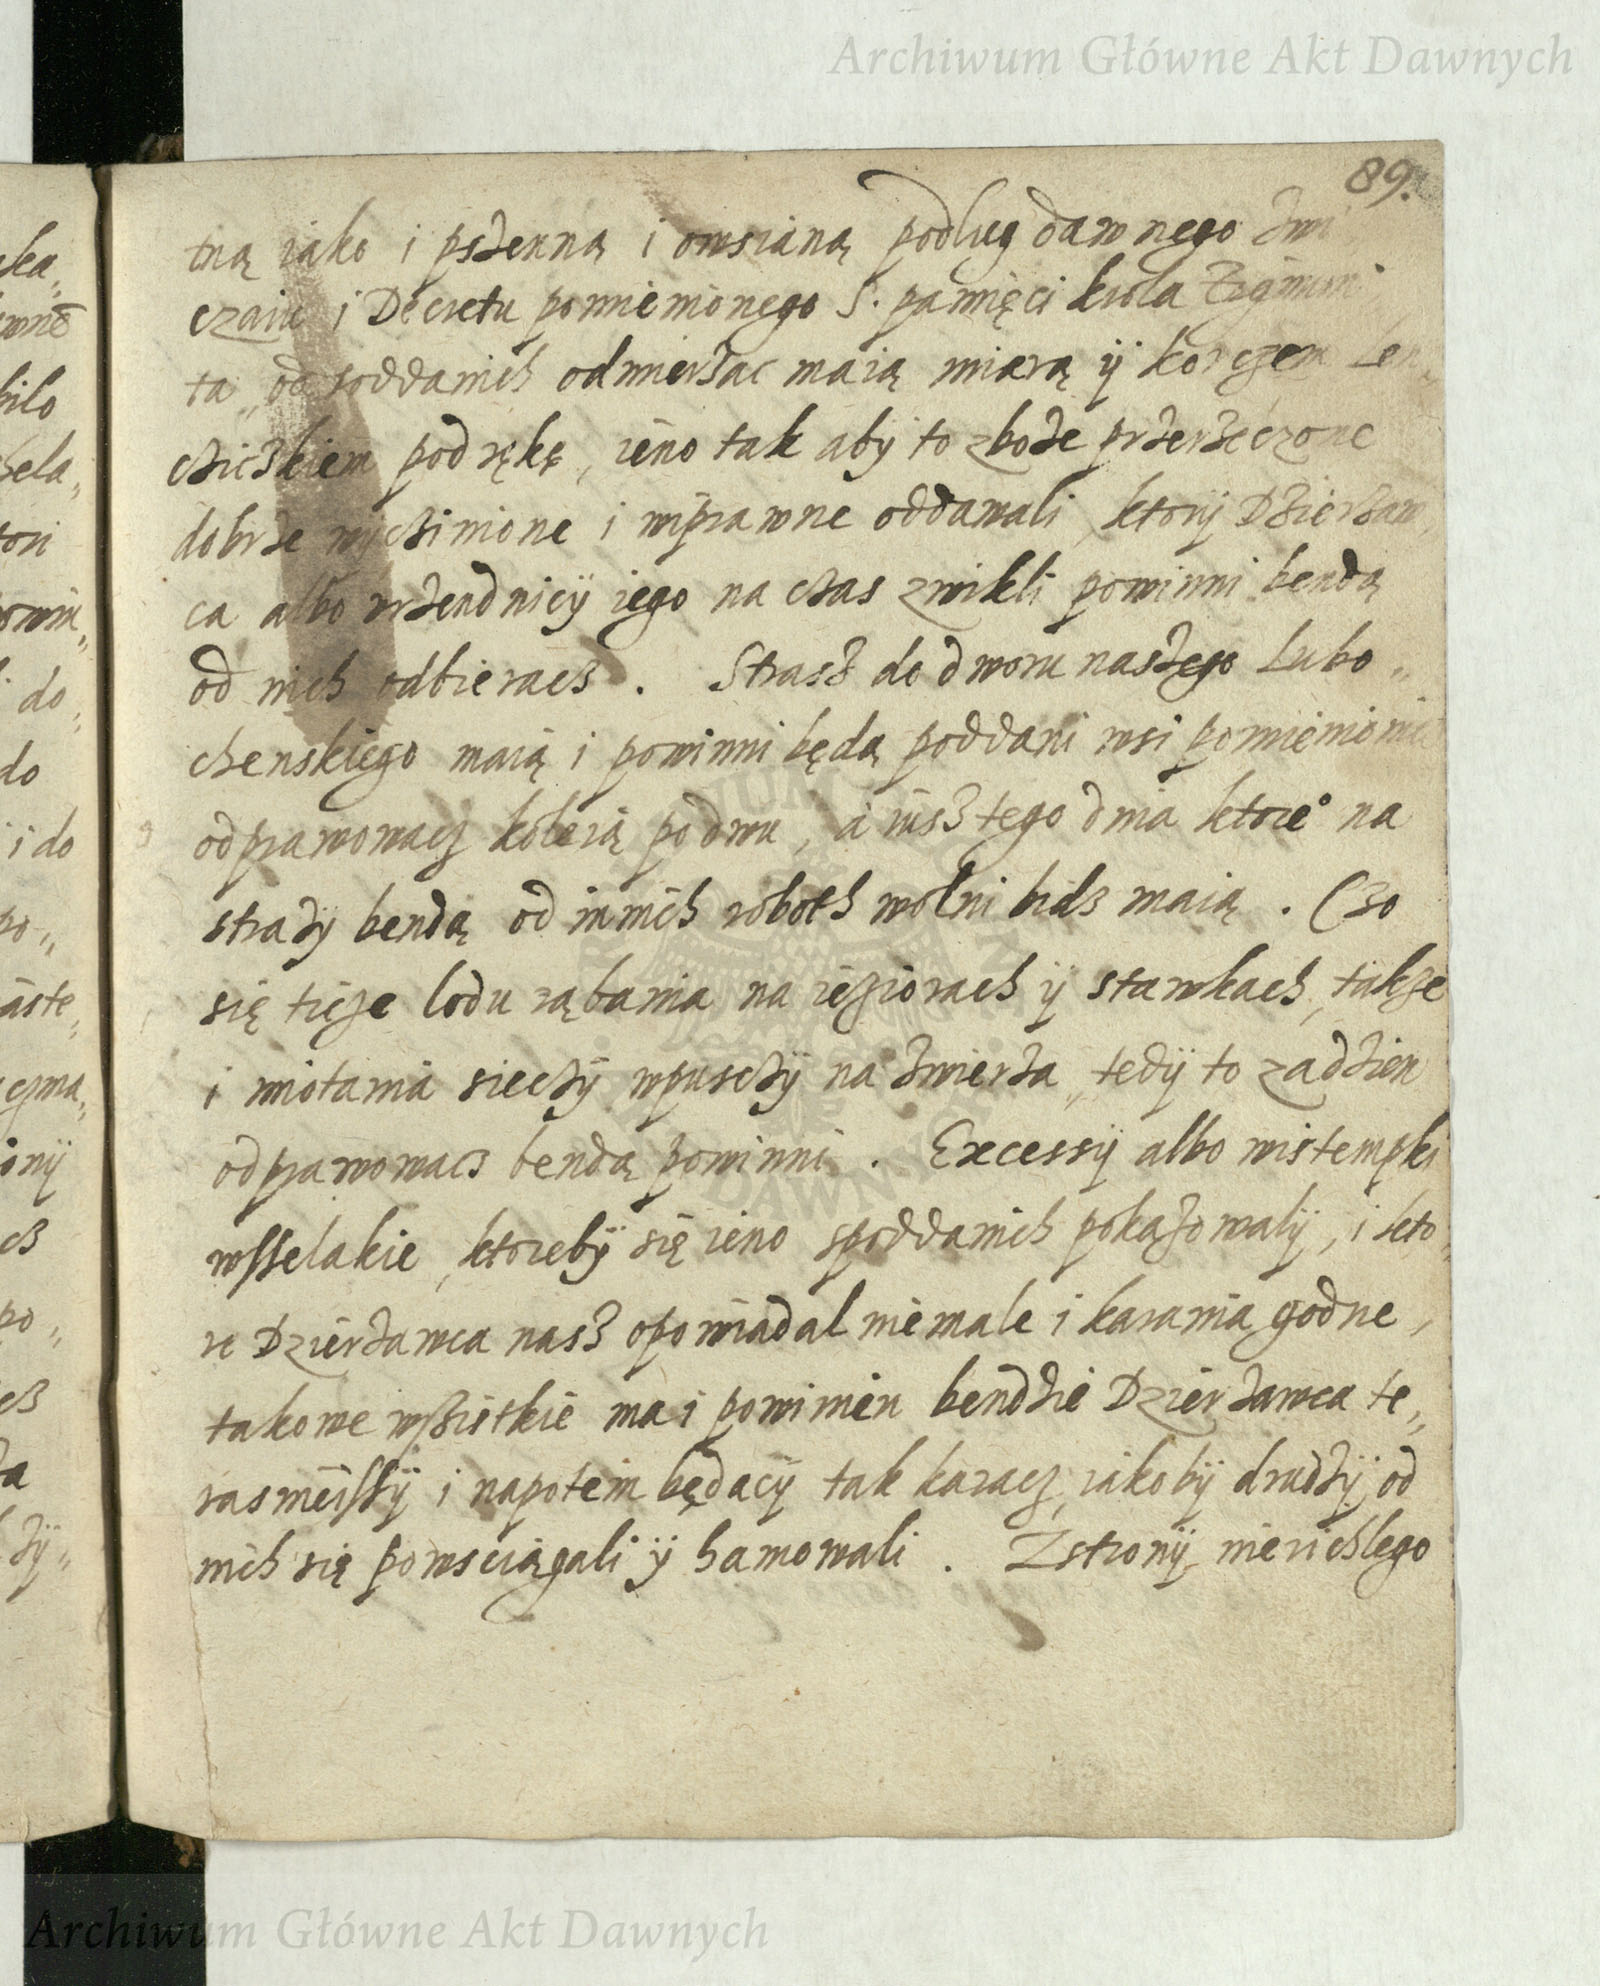 Archiwum Główne Akt Dawnych
89.
tną iako i pszenną i owsianą podług dawnego zwi
czaiu i Decretu pomienionego S. pamięci krola Zigmun
ta „ od poddanich odmierzac maią miarą ÿ korczem Len„
czickiem pod rękę, ieno tak aby to zboże przerzeczone
dobrze wyczinione i wiprawne oddawali, ktorÿ Dzierżaw„
ca albo vrzendnicÿ iego na czas zwikli powinni bendą
od nich odbieracz . Strasz do dworu naszego Lubo„
chenskiego maią i powinni będą poddani wsi pomienionei
odprawowacz koleią po dwu, a iusz tego dnia ktore° na
straży bendą od innich roboth wolni bidz maią . Czo
się ticze lodu rąbania na ieziorach ÿ stawkach, takze
i miotania sieczÿ wpusczÿ na zwierza„ tedÿ to za dzien
odprawowacz bendą powinni . Excessÿ albo wistempki
wsselakie, ktorebÿ się ieno spoddanich pokazowalÿ, i kto„
re Dzierżawca nasz opowiadal nie male i karania godne,
takowe wszistkie ma i powinien bendzie Dzierżawca te„
rasnieissÿ i napotem będacÿ tak karacz, iakobÿ drudzÿ od
nich się powsciągali ÿ hamowali . Zstronÿ nierichlego
ka„
wne
bilo
sela„
tori
owin„
do„
do
i do
po„
aste„
czma„
onÿ
cz
po„
cz
da
żÿ„
Archiwum Główne Akt Dawnych